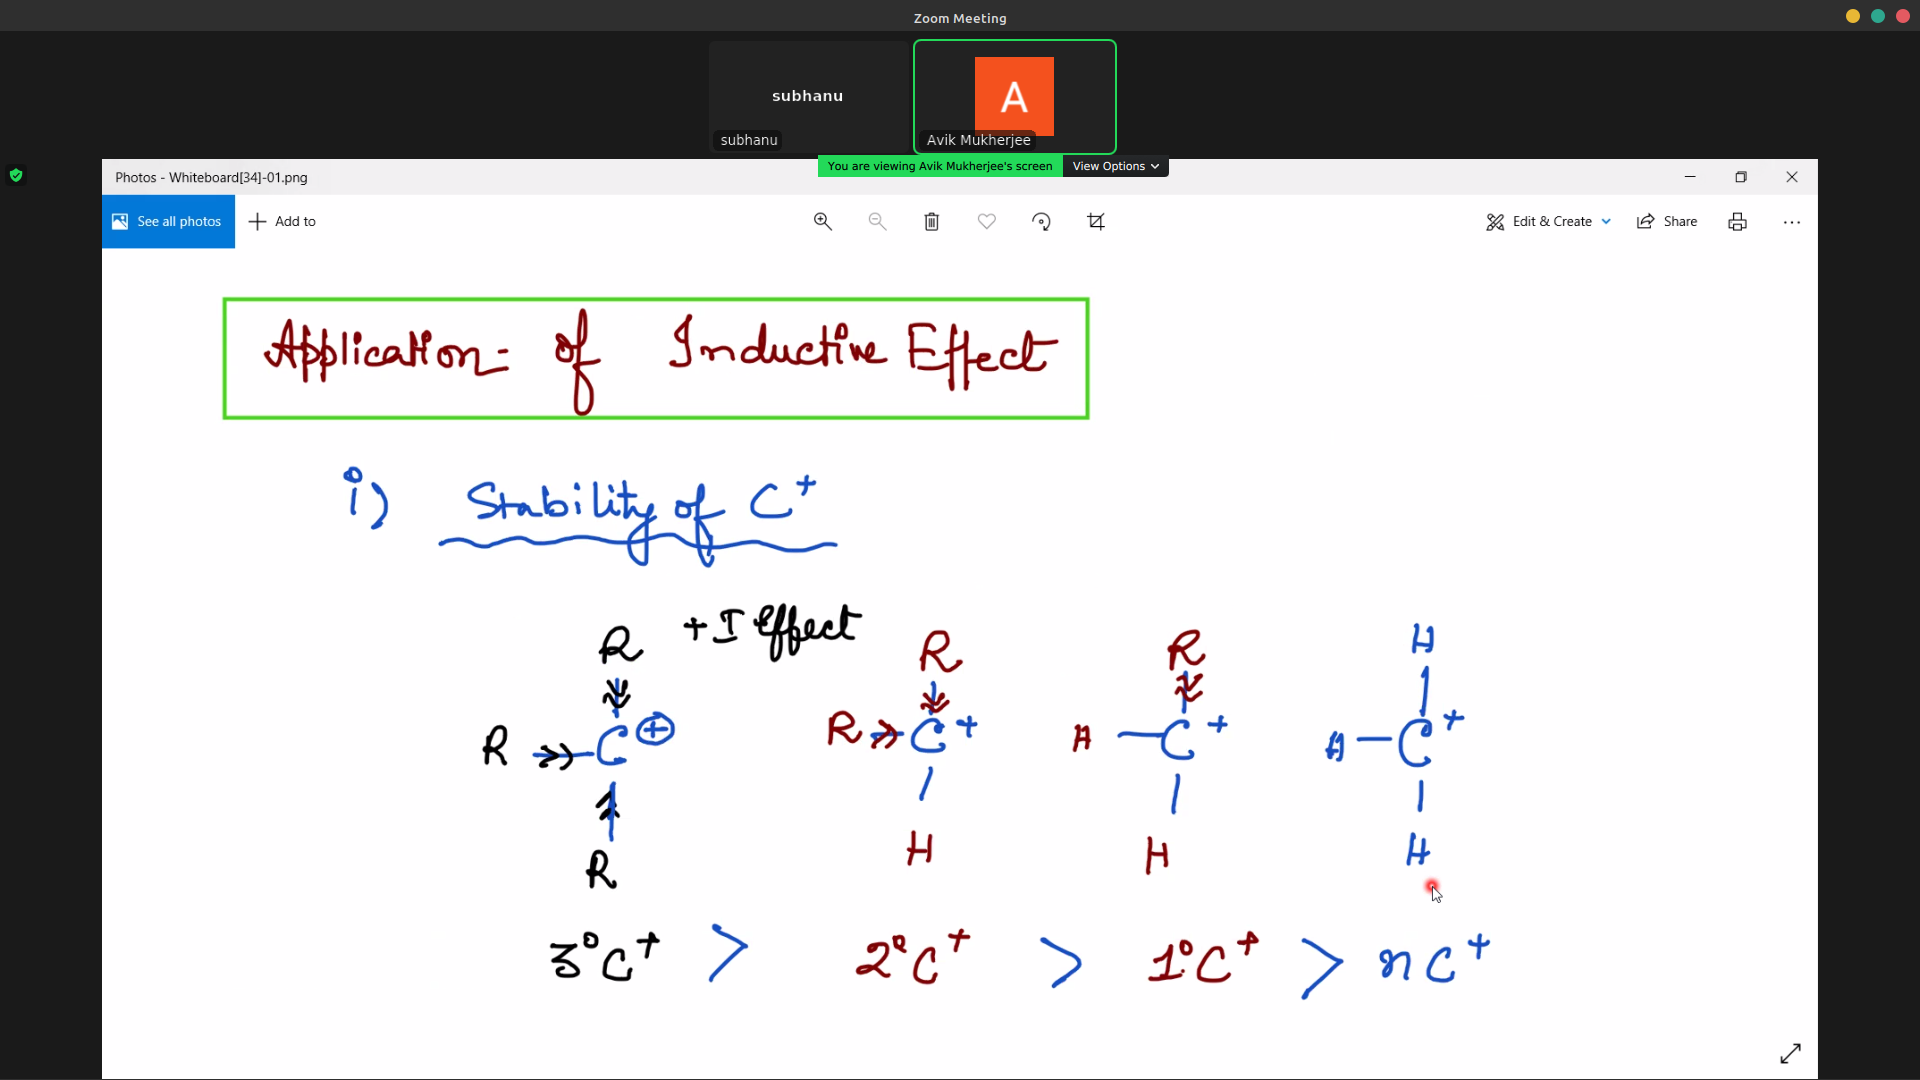 Zoom Meeting
subhanu
A
subhanu
Avik Mukherjee
You are viewing Avik Mukherjee's screen
View Options
Photos - Whiteboard[34]-01.png
See all photos
Add to
Edit & Create
Share
Application of Inductive Effect
i) Stability of C+
+I Effect
R R R H
R C + R C + H C + H C +
R H H H
3°C+ > 2°C+ > 1°C+ > nC+